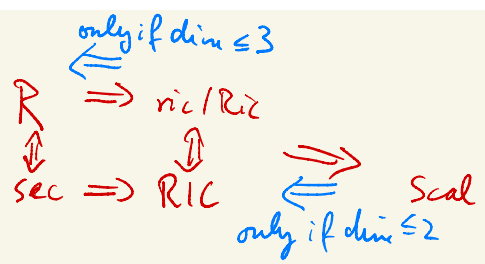 only if dim ≤ 3
⇐
R ⇒ ric/Ric
⇕ ⇕ ⇒
sec ⇒ RIC ⇐ Scal
only if dim ≤ 2